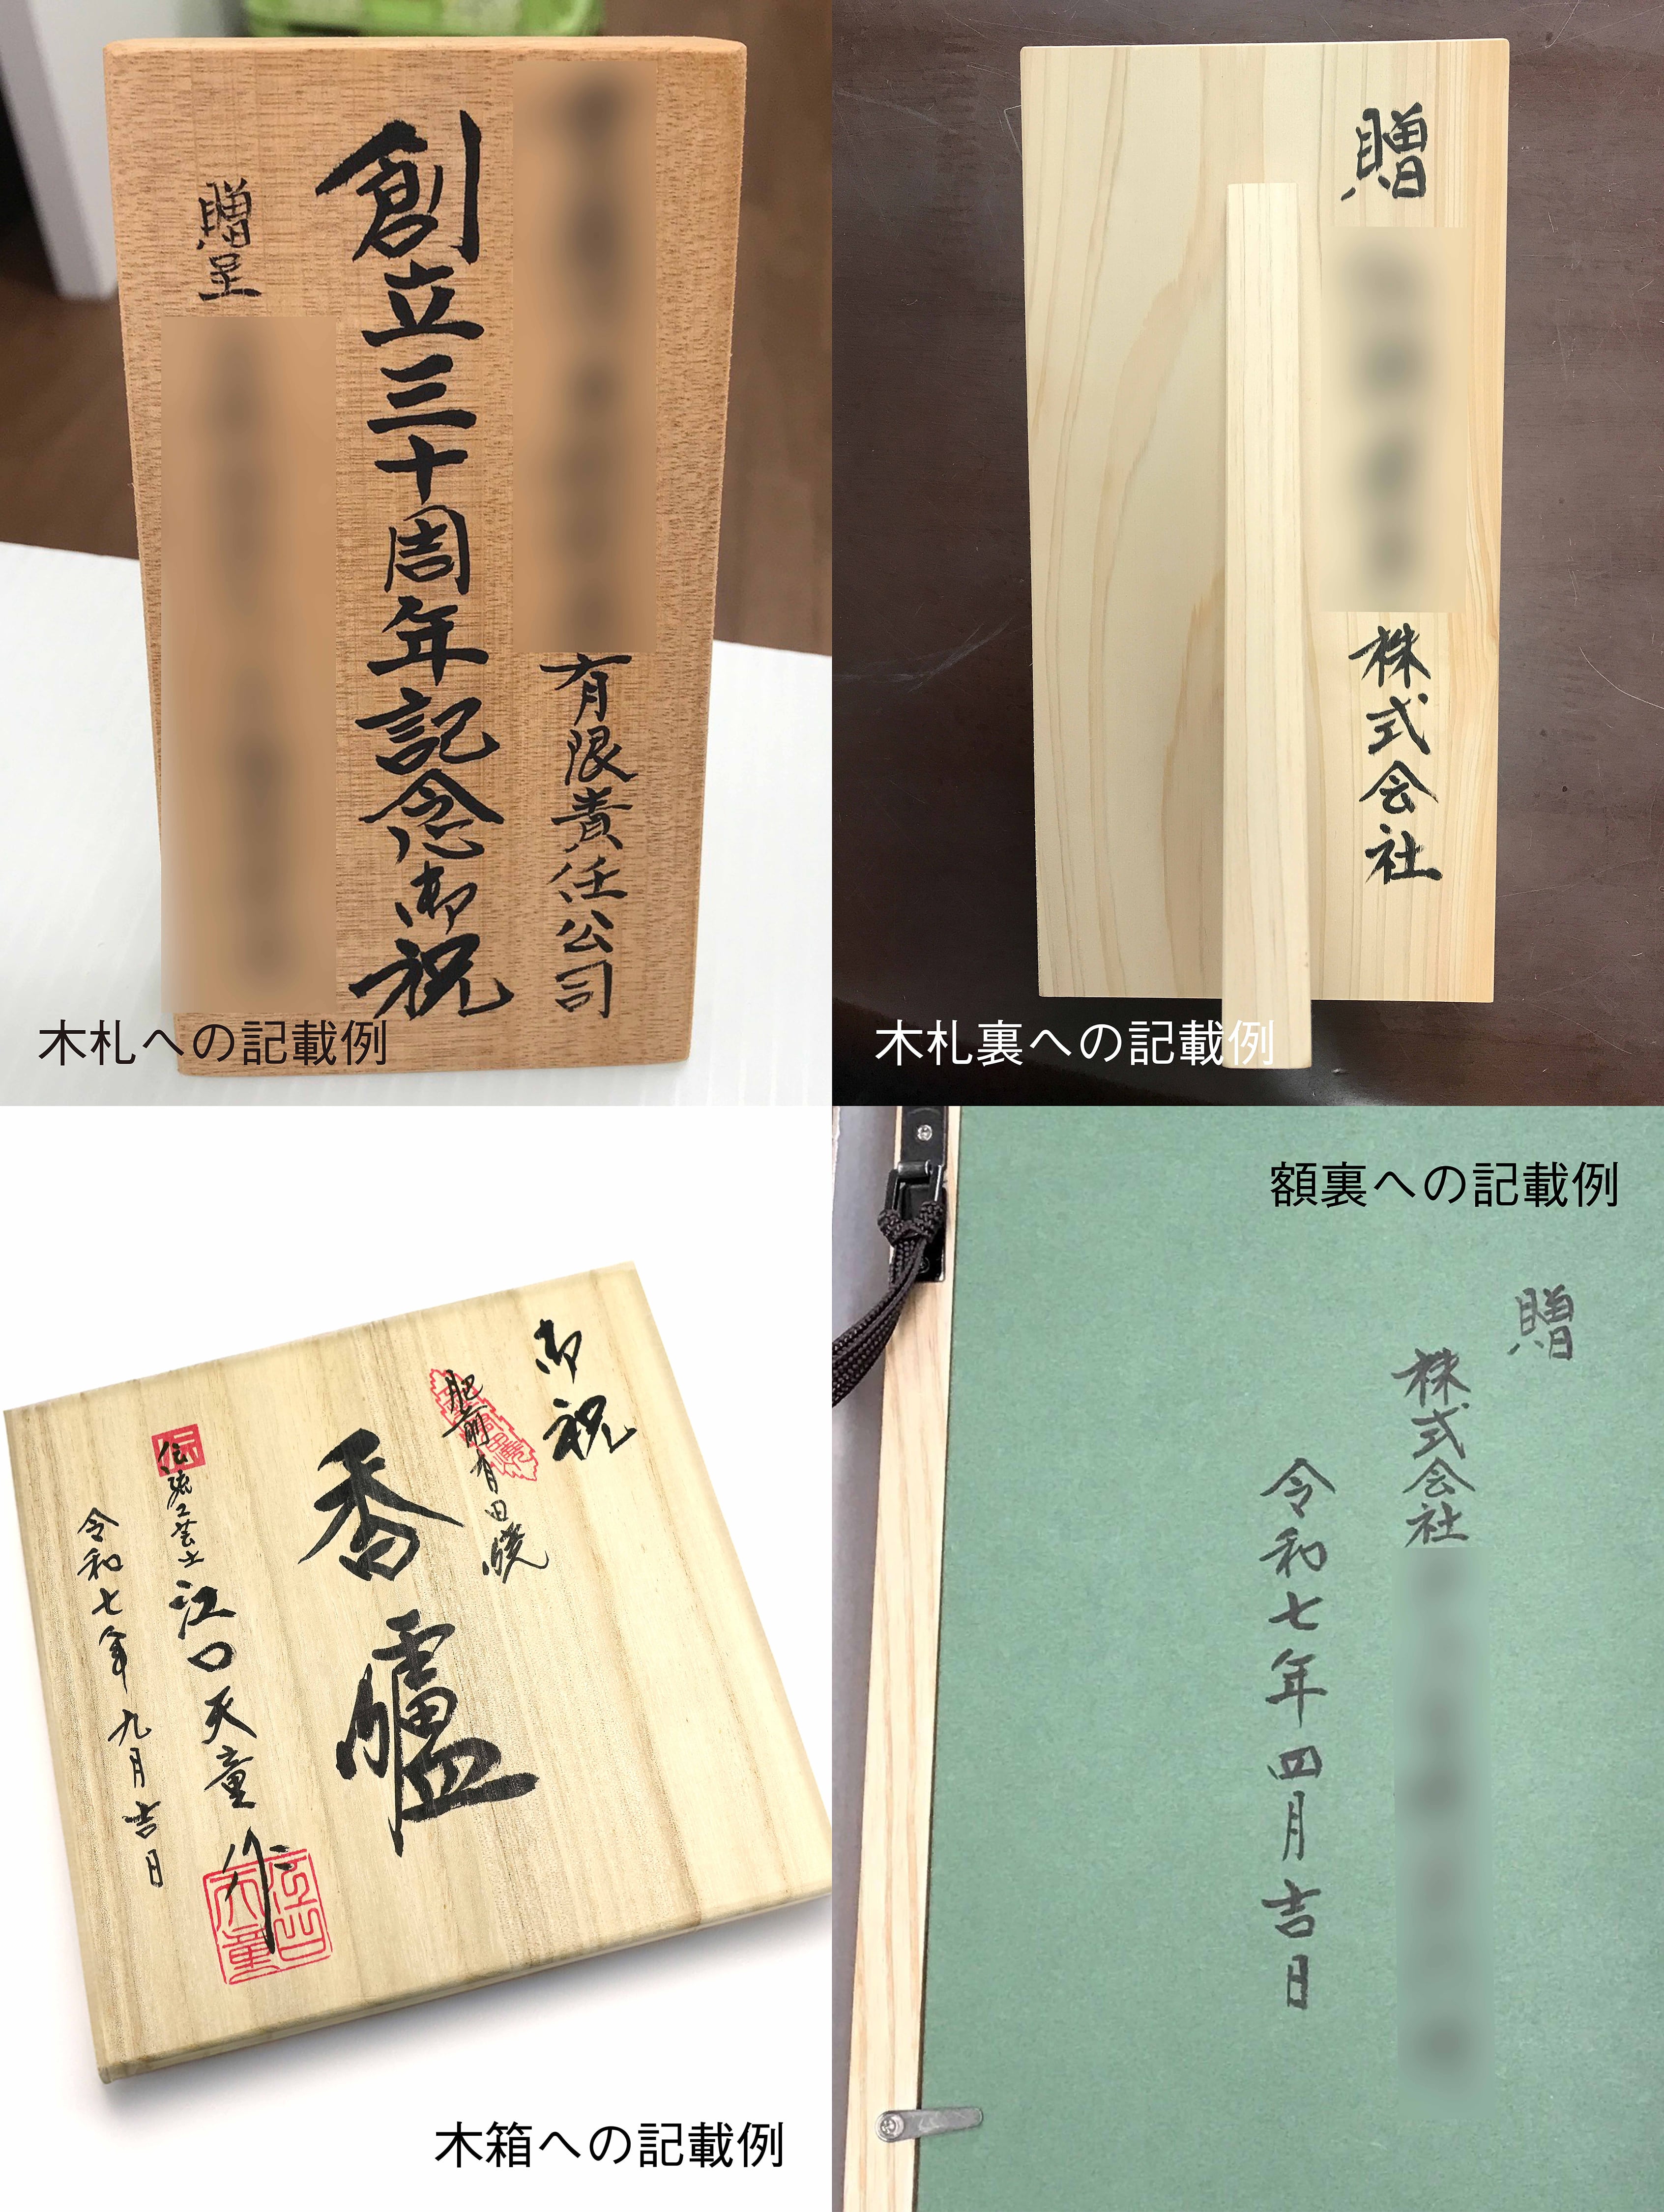 有限責任公司
創立三十周年記念御祝
贈呈
木札への記載例
贈
株式会社
木札裏への記載例
御祝
肥前有田焼
香爐
伝統工芸士 江口天童 作
令和七年九月吉日
木箱への記載例
額裏への記載例
贈
株式会社
令和七年四月吉日